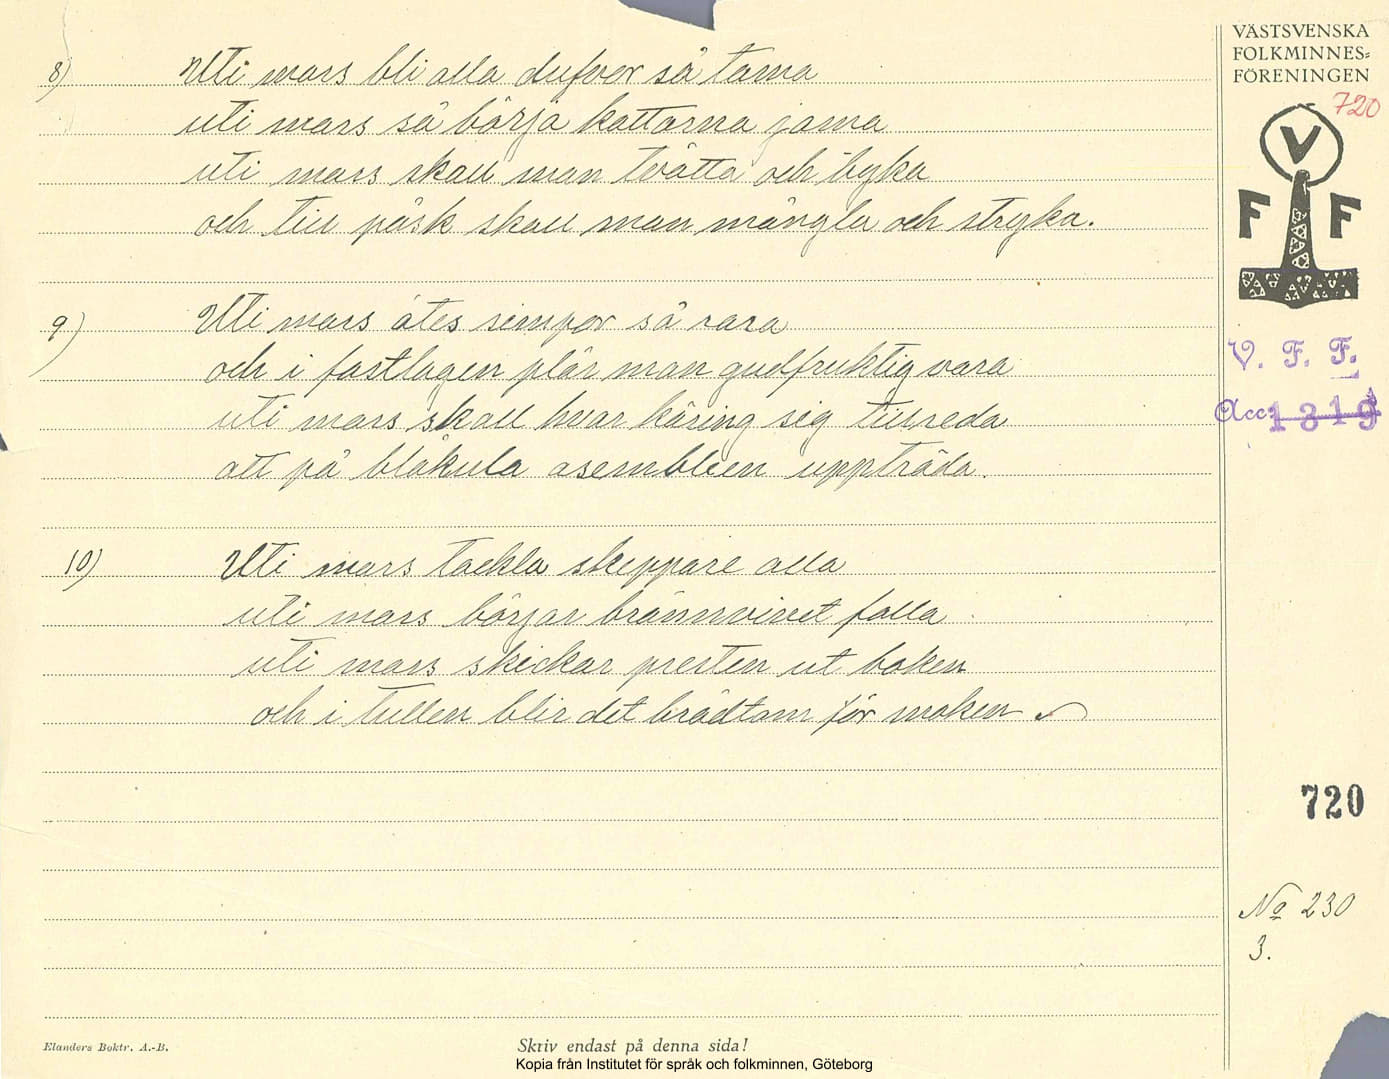 VÄSTSVENSKA
FOLKMINNES=
FÖRENINGEN
720
V
F F
V. F. F.
Acc: 1319
8) Uti mars bli alla dufvor så tama
uti mars så börja kattorna jama
uti mars skall man tvätta och byka
och till påsk skall man mångla och stryka.
9) Uti mars ätes simpor så rara
och i fastlagen plär man gudfruktig vara
uti mars skall hvar käring sig tillreda
att på blåkula asembleen uppträda.
10) Uti mars tackla skeppare alla
uti mars börjar brännvinet falla
uti mars skickar presten ut boken
och i tullen blir det brådtom för moken
720
No 230
3.
Elanders Boktr. A.-B.
Skriv endast på denna sida!
Kopia från Institutet för språk och folkminnen, Göteborg